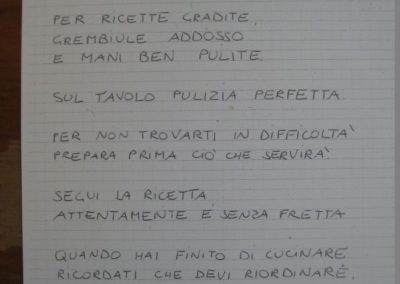 PER RICETTE GRADITE,
GREMBIULE ADDOSSO
E MANI BEN PULITE.
SUL TAVOLO PULIZIA PERFETTA.
PER NON TROVARTI IN DIFFICOLTA'
PREPARA PRIMA CIÒ CHE SERVIRÀ.
SEGUI LA RICETTA
ATTENTAMENTE E SENZA FRETTA
QUANDO HAI FINITO DI CUCINARE
RICORDATI CHE DEVI RIORDINARE.